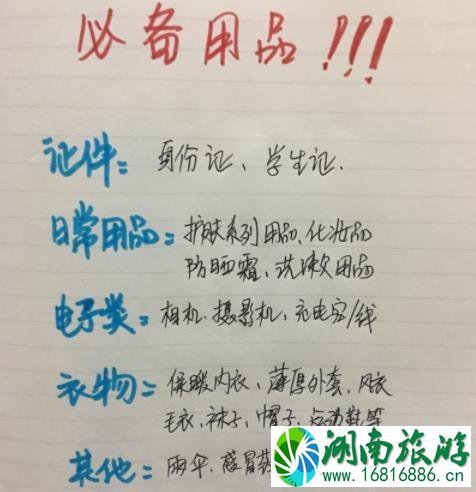 必备用品!!!
证件: 身份证、学生证.
日常用品: 护肤系列用品、化妆品
防晒霜、洗漱用品
电子类: 相机、摄影机、充电宝/线
衣物: 保暖内衣、薄厚外套、风衣
毛衣、袜子、帽子、运动鞋等
其他: 雨伞、感冒药
湖南旅游
www.16816886.cn